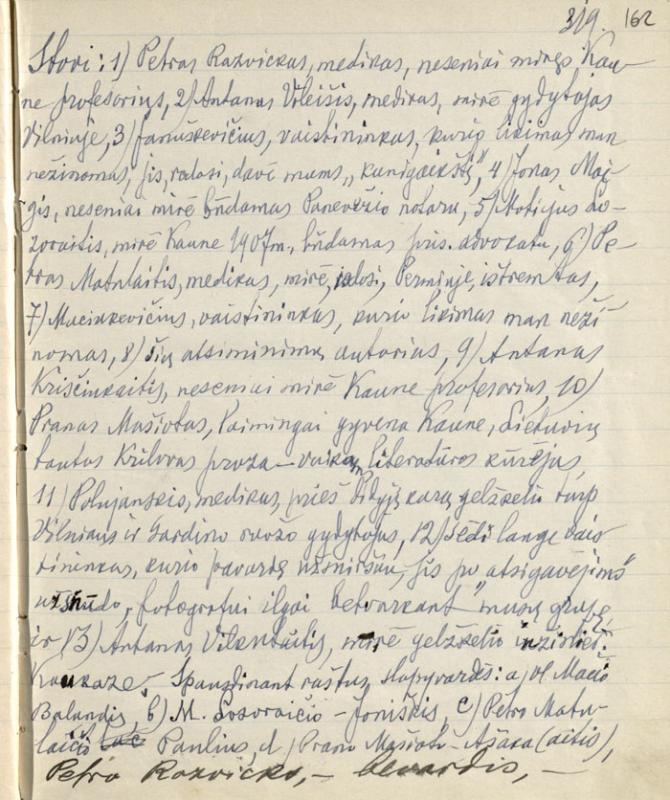 319. 162
Stovi: 1) Petras Razvickas, medikas, neseniai miręs Kau-
ne profesorius, 2) Antanas Vileišis, medikas, mirė gydytojas
Vilniuje, 3) Januškevičius, vaistininkas, kurio likimas man
nežinomas, jis, rodosi, davė mums „kunigaikštį", 4) Jonas Mač
gis, neseniai mirė būdamas Panevėžio notaru, 5) Motiejus Lo-
zoraitis, mirė Kaune 1907 m. būdamas pris. advokatu, 6) Pe-
tras Matulaitis, medikas, mirė, rodosi, Permiuje, ištremtas,
7) Maciukevičius, vaistininkas, kurio likimas man neži
nomas, 8) šių atsiminimų autorius, 9) Antanas
Kriščiukaitis, neseniai mirė Kaune profesorius, 10)
Pranas Mašiotas, laimingai gyvena Kaune, Lietuvių
tautos proza – vaikų literatūros kūrėjas,
11) Polujanskis, medikas, prieš Didįjį karą gelžkelio tarp
Vilniaus ir Gardino ruožo gydytojas, 12) sėdi lange vais
tininkas, kurio pavardę užmiršau, jis po „atsigavėjimo"
fotografui ilgai betvarkant musų grupę,
ir 13) Antanas mirė gelžkelio inžinier.
Kaukaze. Spausdinant raštus, slapyvardės: a) vl Mačio
Balandis, b) M. Lozoraičio – Joniškis, c) Petro Matu-
laičio Paulius, d) Prano Mašioto – Ašaka (aitis),
Petro Razvicko, – bevardis, –